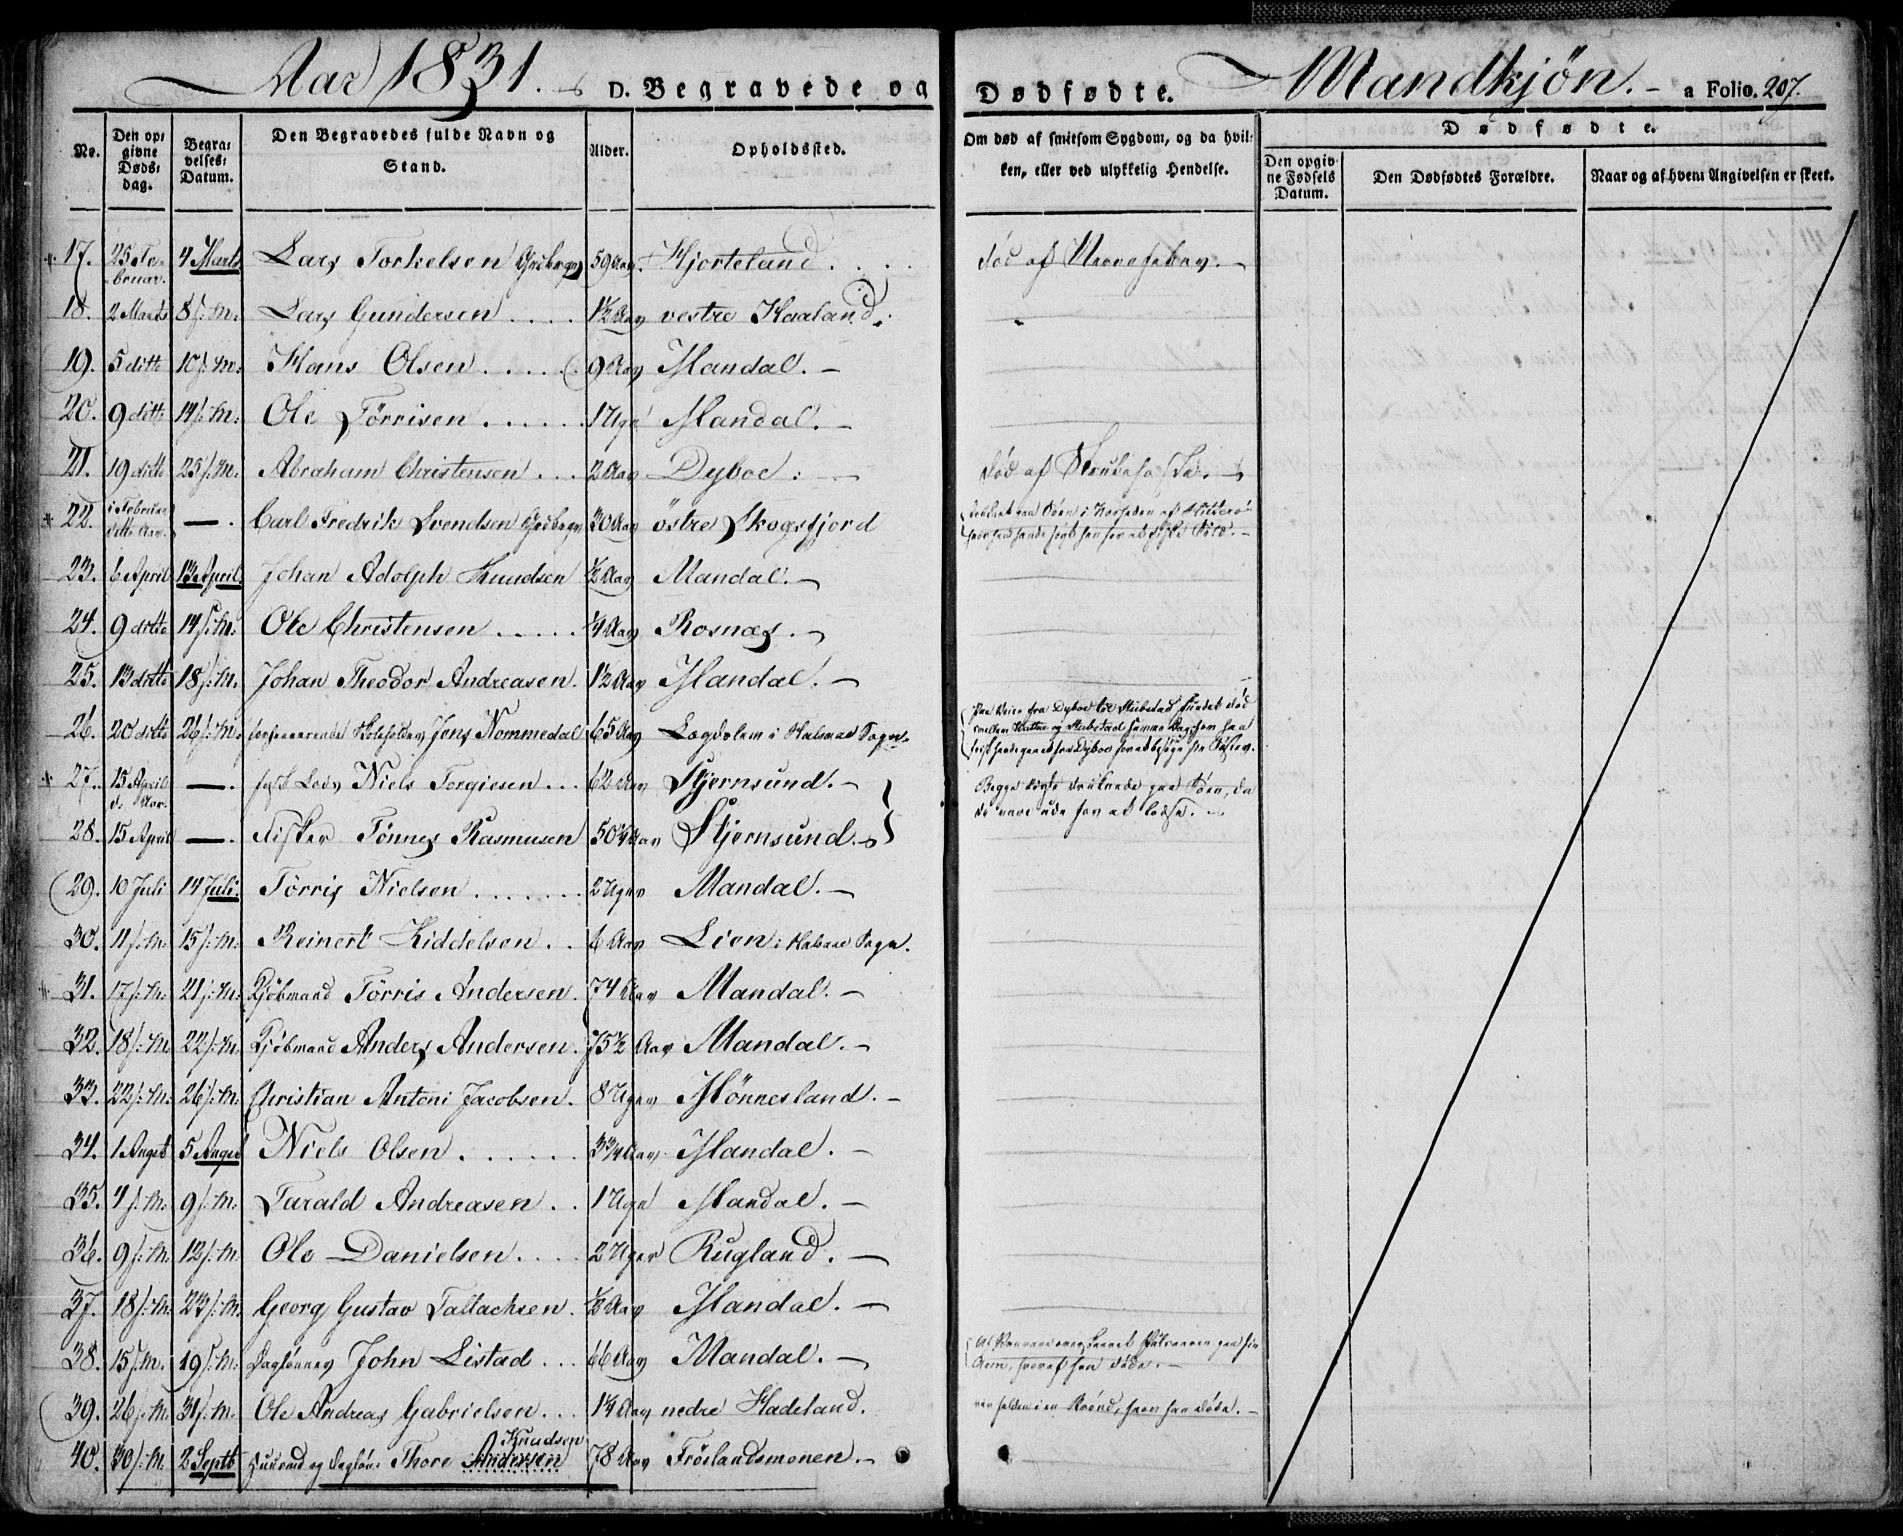 Aar 1831. D. Begravede og Dødfødte. Mandkjøn. a Folio. 207.
No. Den opgivne Dødsdag. Begravelses Datum. Den Begravedes fulde Navn og Stand. Alder. Opholdssted. Om død af smitsom Sygdom, og da hvilken, eller ved ulykkelig Hendelse. Dødfødte. Den opgivne Fødsels Datum. Den Dødfødtes Forældre. Naar og af hvem Angivelsen er skeet.
17. 25 Februar. 4 Marts Lars Torkelsen 59 Aar. Hjorteland. død af Nervefeber.
18. 2 Marts 8 /: M: Lars Gundersen 1½ Aar vestre Haaland.
19. 5 ditto 10 /: M: Hans Olsen 9 Aar Mandal.
20. 9 ditto 14 /: M: Ole Tørrisen 1 Uge Mandal.
21. 19 ditto 25 /: M: Abraham Christensen 2 Aar Dyboe: død af
22. i Februar ditto Aar. — Carl Fredrik Svendsen 30 Aar östre Skogsfjord
23. 6 April 13 April Johan Adolph Knudsen ½ Aar Mandal.
24. 9 ditto 14 /: M: Ole Christensen ¼ Aar Rosnæs.
25. 13 ditto 18 /: M. Johan Theodor Andreasen. 1½ Aar Mandal.
26. 20 ditto 26 /: M. Jens Nommedal 65 Aar i Halsaae Sogn. Paa Veien fra Dyboe til
27. 15 April d: Aar. — Lods Niels Torgiesen 62 Aar Stjernsund. Begge disse druknede paa Søen, da
28. 15 April — Fisker Tønnes Rasmusen 50¼ Aar Stjernsund. de vare ude for at lodse.
29. 10 Juli 14 Juli. Tørris Nielsen 2 Uger Mandal.
30. 11 /: M: 15 /: M: Reinert Kiddelsen 6 Aar Lien i Halsaae Sogn.
31. 17 /: M: 21 /: M: Kjøbmand Tørris Andersen. 74 Aar Mandal.
32. 18 /: M. 22 /: M. Kjøbmand Anders Andersen. 75½ Aar Mandal.
33. 22 /: M: 26 /: M: Christian Antoni Jacobsen. 8 Uger Mønnesland.
34. 1 Augst 5 Augst Niels Olsen 3¾ Aar Mandal.
35. 4 /: M: 9 /: M: Tarald Andreasen 1 Uge Mandal.
36. 9 /: M: 12 /: M Ole Danielsen 2 Uger Rugland.
37. 18 /: M: 23 /: M. Georg Gustav Tallachsen. ½ Aar Mandal.
38. 15 /: M. 19 /: M: Daglønner John Listad 66 Aar Mandal. Arm, hvoraf han døde.
39. 26 /: M 31 /: M. Ole Andreas Gabrielsen 1¼ Aar nedre Hadeland. hvor han døde.
40. 30 /: M. 2 Septb Huusmd og Dagløn: Thore Andersen Knudsen 78 Aar Frøslandsmonen.